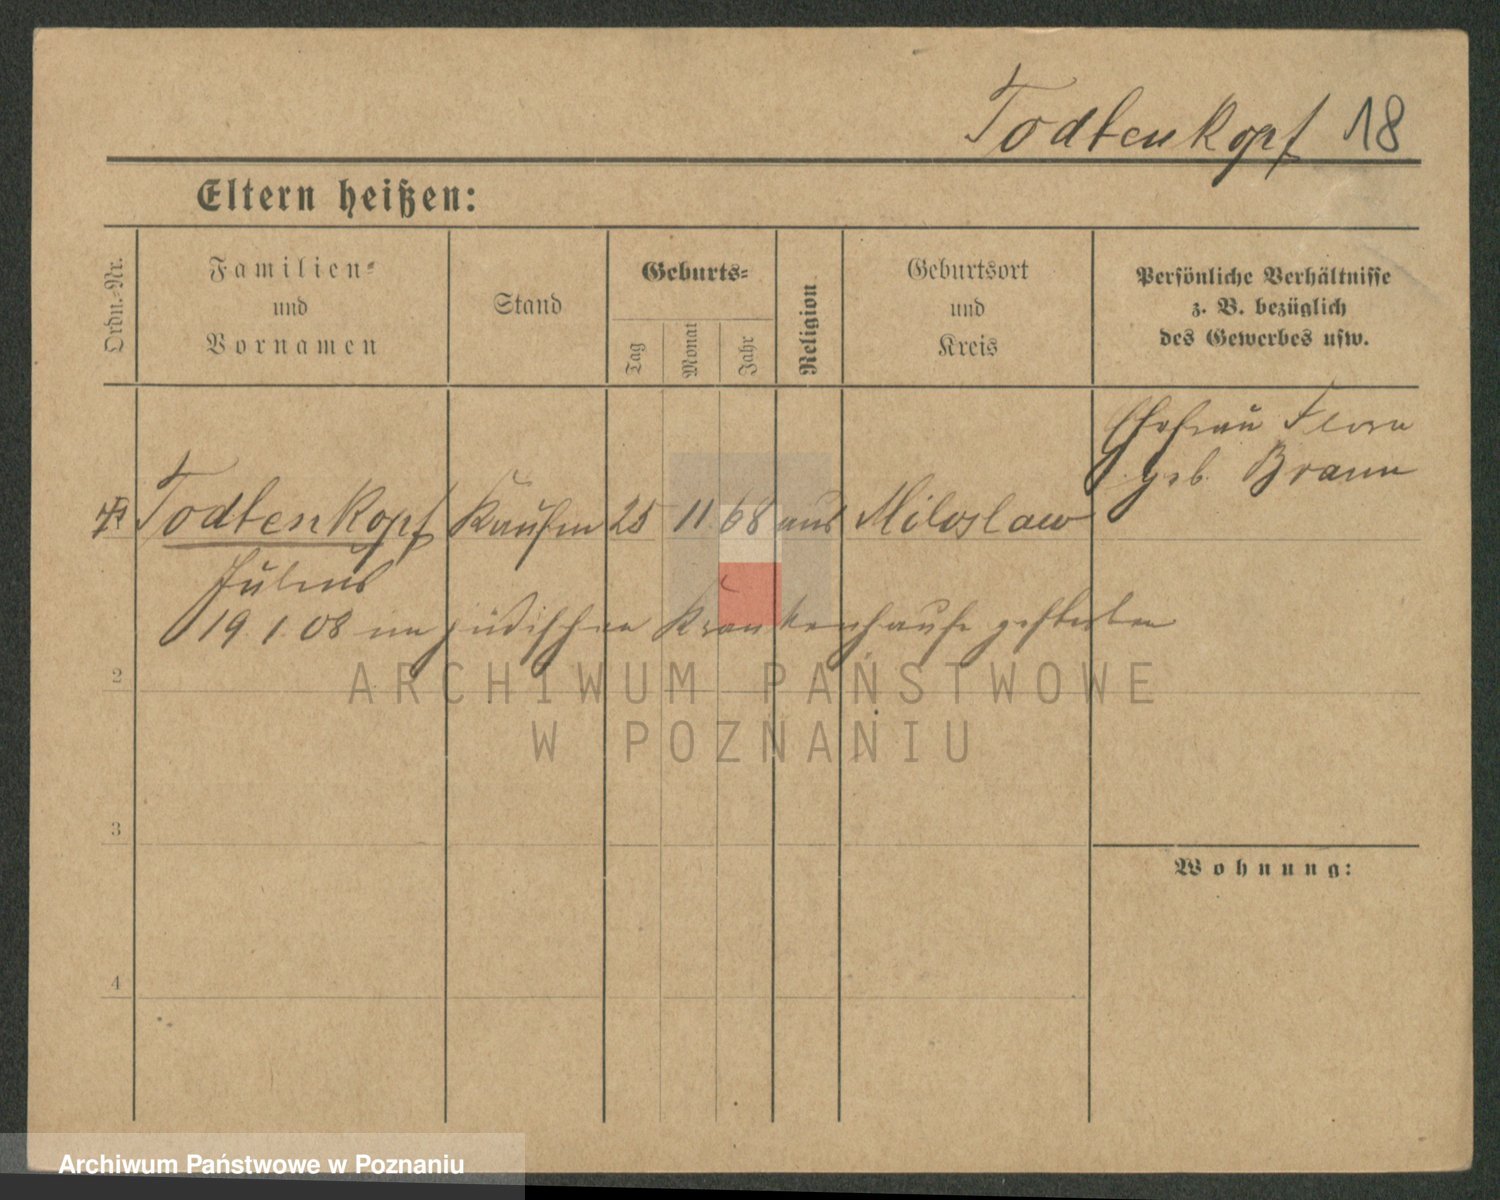 Todtenkopf 18
Eltern heißen:
Ordn.-Nr.
Familien-
und
Vornamen
Stand
Geburts-
Tag
Monat
Jahr
Religion
Geburtsort
und
Kreis
Persönliche Verhältnisse
z. B. bezüglich
des Gewerbes usw.
Ehefrau Flora
geb. Braun
Todtenkopf Kaufm 25 11. 68 aus Miloslaw
Julius
19. 1. 08 im jüdischen Krankenhause gestorben
2
ARCHIWUM PAŃSTWOWE
W POZNANIU
3
Wohnung:
4
Archiwum Państwowe w Poznaniu